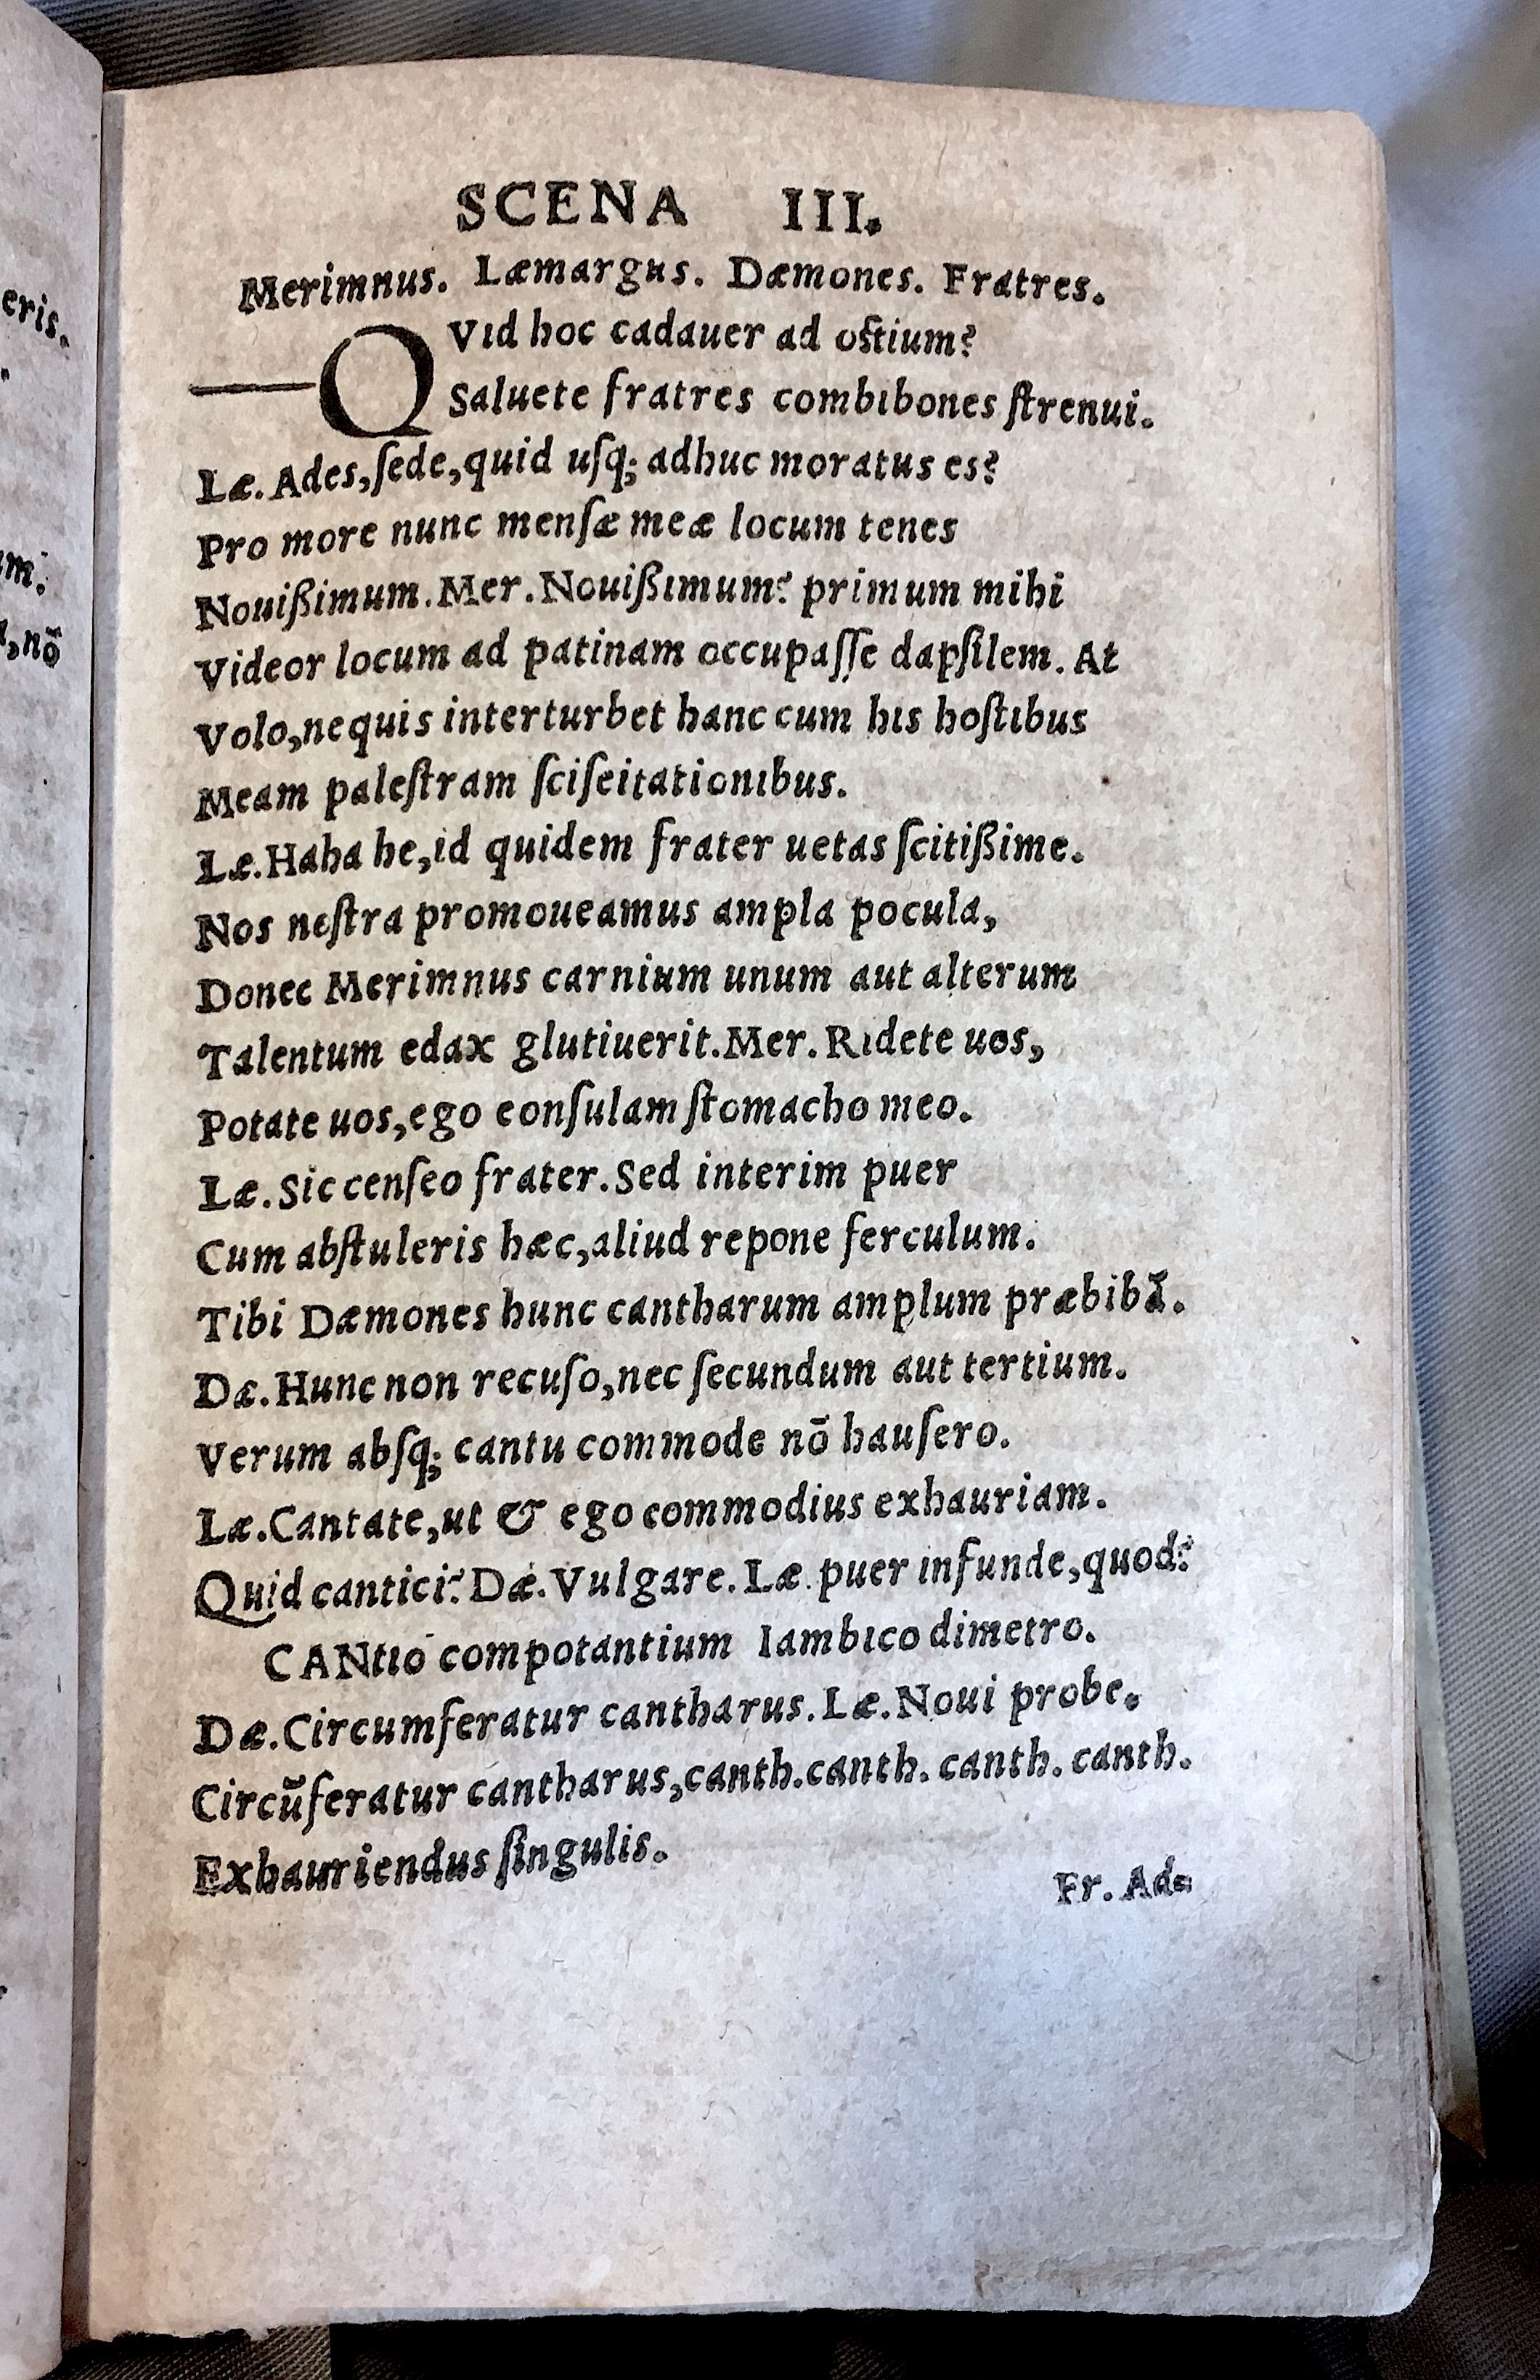 SCENA III.
Merimnus. Læmargus. Dæmones. Fratres.
—QVid hoc cadauer ad oſtium?
Saluete fratres combibones ſtrenui.
Læ. Ades, ſede, quid uſq; adhuc moratus es?
Pro more nunc menſæ meæ locum tenes
Nouißimum. Mer. Nouißimum? primum mihi
Videor locum ad patinam occupaſſe dapſilem. At
Volo, nequis interturbet hanc cum his hoſtibus
Meam paleſtram ſciſeitationibus.
Læ. Haha he, id quidem frater uetas ſcitißime.
Nos noſtra promoueamus ampla pocula,
Donec Merimnus carnium unum aut alterum
Talentum edax glutiuerit. Mer. Ridete uos,
Potate uos, ego conſulam ſtomacho meo.
Læ. Sic cenſeo frater. Sed interim puer
Cum abſtuleris hæc, aliud repone ferculum.
Tibi Dæmones hunc cantharum amplum præbibā.
Dæ. Hunc non recuſo, nec ſecundum aut tertium.
Verum abſq; cantu commode nō hauſero.
Læ. Cantate, ut & ego commodius exhauriam.
Quid cantici? Dæ. Vulgare. Læ. puer infunde, quod?
CANtio compotantium Iambico dimetro.
Dæ. Circumferatur cantharus. Læ. Noui probe.
Circūferatur cantharus, canth. canth. canth. canth.
Exhauriendus ſingulis.
Fr. Ade
eris.
um:
nō